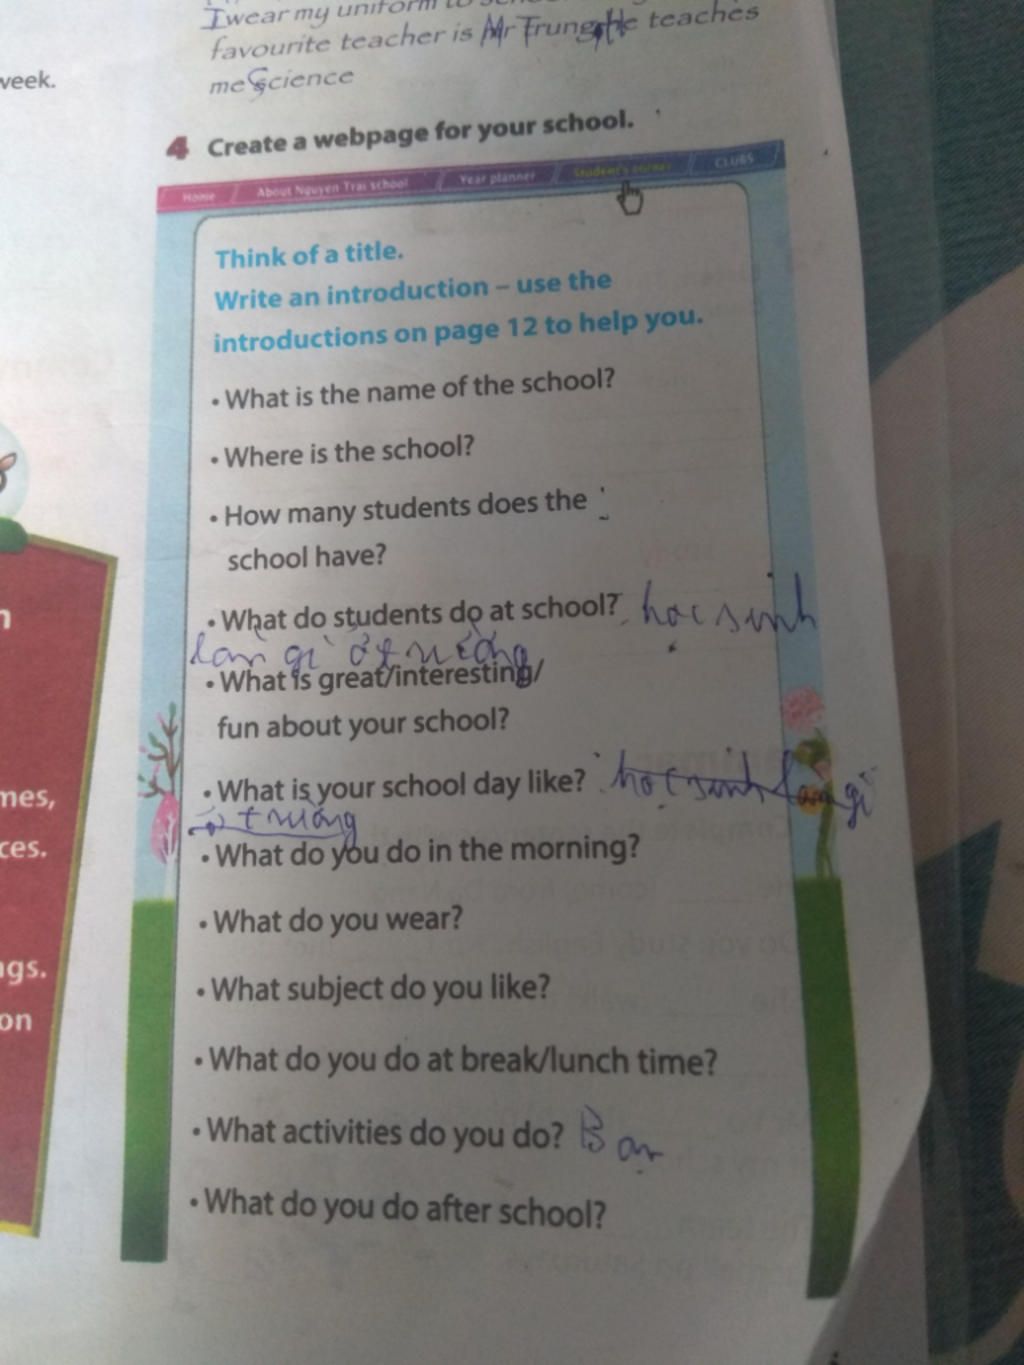 I wear my uniform to
favourite teacher is Mr Trung, He teaches
me Science
week.
4 Create a webpage for your school.
Home About Nguyen Trai school Year planner Student's corner CLUBS
Think of a title.
Write an introduction – use the
introductions on page 12 to help you.
• What is the name of the school?
• Where is the school?
• How many students does the
school have?
• What do students do at school? học sinh
làm gì ở trường
• What is great/interesting/
fun about your school?
• What is your school day like? học sinh làm gì
ở trường
• What do you do in the morning?
• What do you wear?
• What subject do you like?
• What do you do at break/lunch time?
• What activities do you do? Bạn
• What do you do after school?
mes,
ces.
ngs.
on